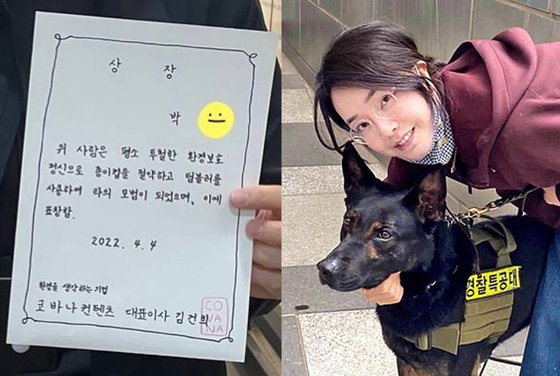 상 장
박
위 사람은 평소 투철한 환경보호
정신으로 종이컵을 절약하고 텀블러를
사용하여 타의 모범이 되었으며, 이에
표창함.
2022. 4. 4
환경을 생각하는 기업
코바나컨텐츠 대표이사 김건희
COVANA
경찰특공대